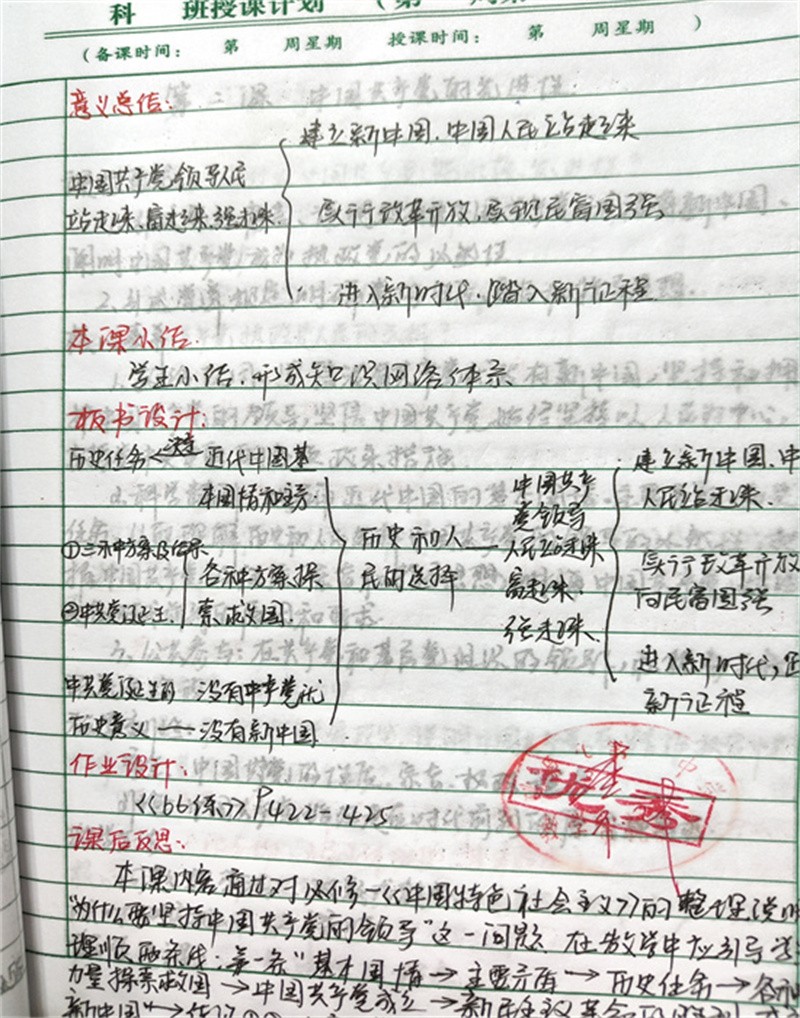 科 班授课计划 (第 周第
(备课时间: 第 周星期 授课时间: 第 周星期 )
意义总结:
建立新中国,中国人民站起来
中国共产党领导人民
站起来、富起来、强起来
实行改革开放,实现民富国强
进入新时代,踏入新征程
本课小结:
学生小结,形成知识网络体系
板书设计:
历史任务 决定 近代中国基
本国情和主矛
①三种方案及结果
②中共党诞生
各种方案探
索救国
中共党诞生的 没有中共党就
历史意义 没有新中国
历史和人
民的选择
中国共产
党领导
人民站起来
富起来
强起来
建立新中国,中
人民站起来
实行改革开放
向民富国强
进入新时代,
新征程
作业设计:
《66练》P422-425
课后反思:
本课内容通过对必修一《中国特色社会主义》的整理说明
"为什么要坚持中国共产党的领导"这一问题 在教学中应引导学
理顺两条线:第一条"基本国情→主要矛盾→历史任务→各种
力量探索救国→中国共产党成立→新民主主义革命的胜利
新中国"